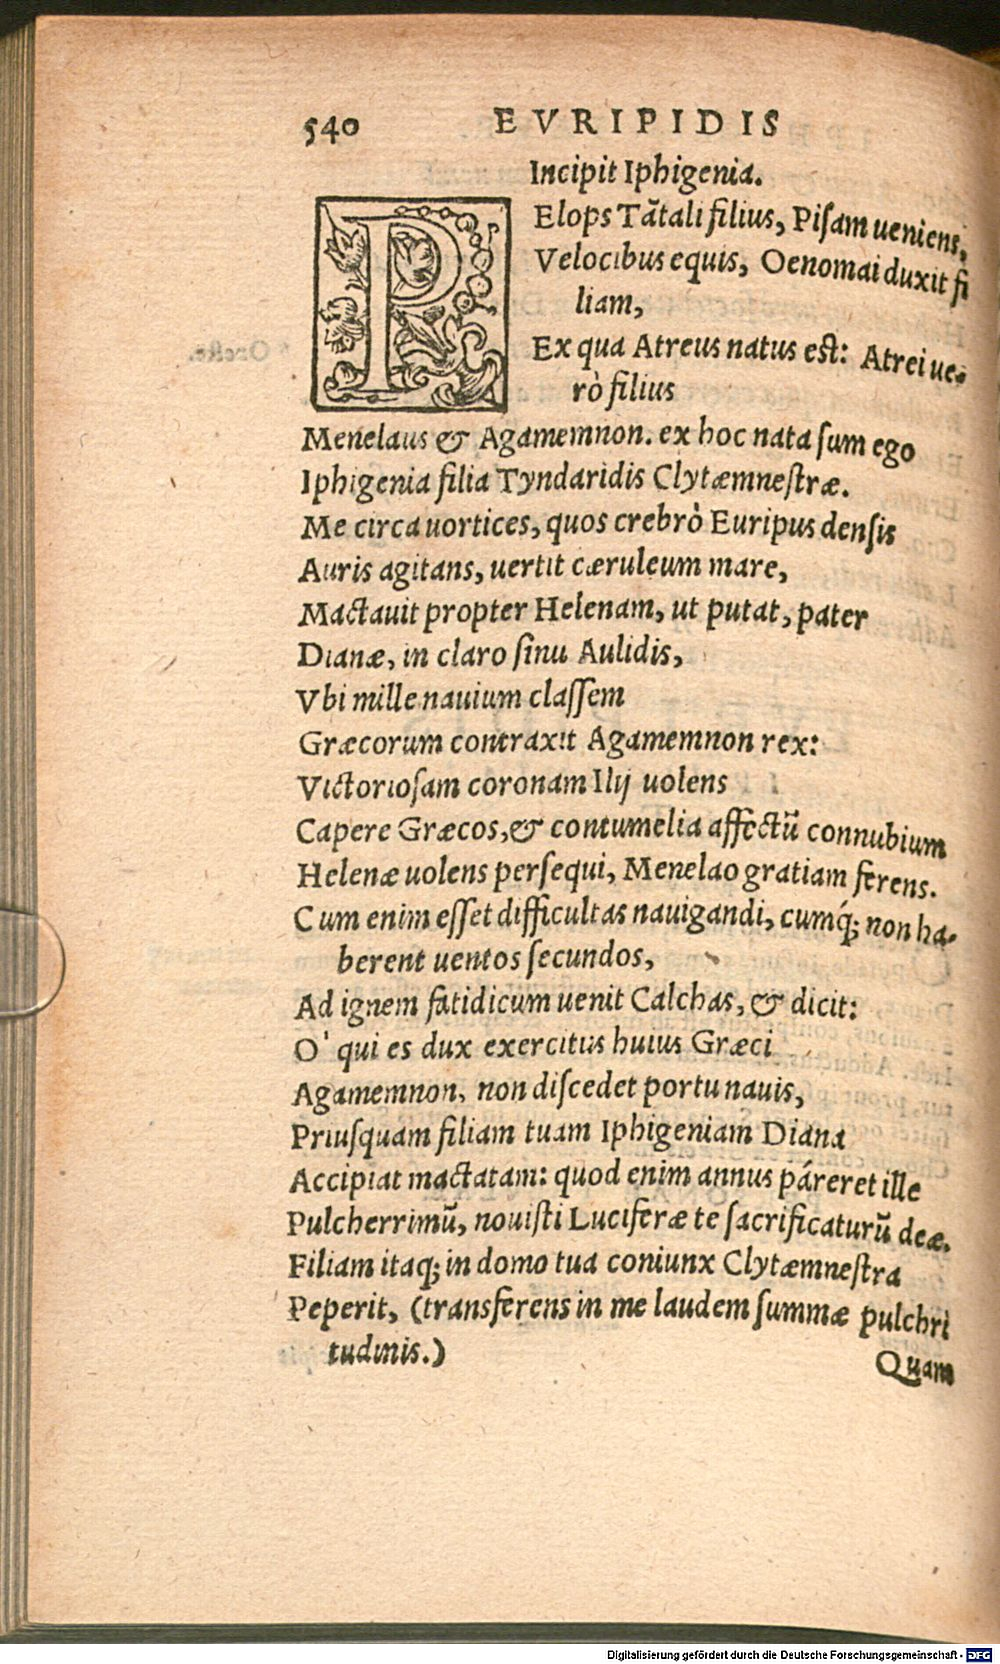 540 EVRIPIDIS
Incipit Iphigenia.
PElops Tātali filius, Piſam ueniens,
Velocibus equis, Oenomai duxit fi
liam,
Ex qua Atreus natus est: Atrei ue-
rò filius
Menelaus & Agamemnon. ex hoc nata ſum ego
Iphigenia filia Tyndaridis Clytæmneſtræ.
Me circa uortices, quos crebrò Euripus denſis
Auris agitans, uertit cæruleum mare,
Mactauit propter Helenam, ut putat, pater
Dianæ, in claro ſinu Aulidis,
Vbi mille nauium claſſem
Græcorum contraxit Agamemnon rex:
Victorioſam coronam Ilij uolens
Capere Græcos, & contumelia affectū connubium
Helenæ uolens perſequi, Menelao gratiam ferens.
Cum enim eſſet difficultas nauigandi, cumq́; non ha-
berent uentos ſecundos,
Ad ignem fatidicum uenit Calchas, & dicit:
O' qui es dux exercitus huius Græci
Agamemnon, non diſcedet portu nauis,
Priuſquam filiam tuam Iphigeniam Diana
Accipiat mactatam: quod enim annus páreret ille
Pulcherrimū, nouiſti Luciferæ te ſacrificaturū deæ.
Filiam itaq; in domo tua coniunx Clytæmneſtra
Peperit, (transferens in me laudem ſummæ pulchri
tudinis.)
Quam
Digitalisierung gefördert durch die Deutsche Forschungsgemeinschaft - DFG